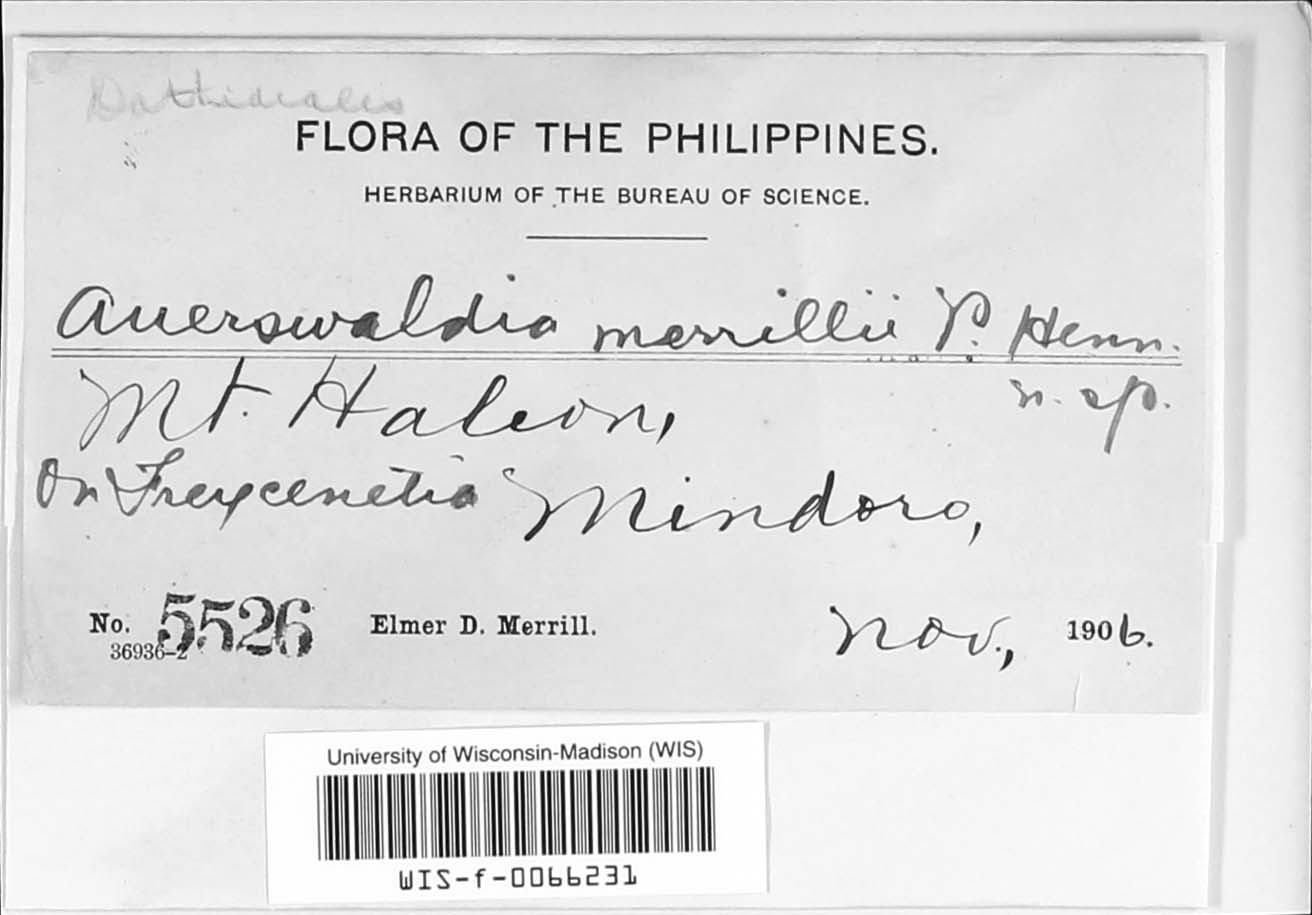 Dothideales
FLORA OF THE PHILIPPINES.
HERBARIUM OF THE BUREAU OF SCIENCE.
Auerswaldia merrillii P. Henn.
n. sp.
Mt. Halcon,
On Freycenetia Mindoro,
No. 5526 Elmer D. Merrill. Nov., 1906.
36936-2
University of Wisconsin-Madison (WIS)
WIS-f-0066231